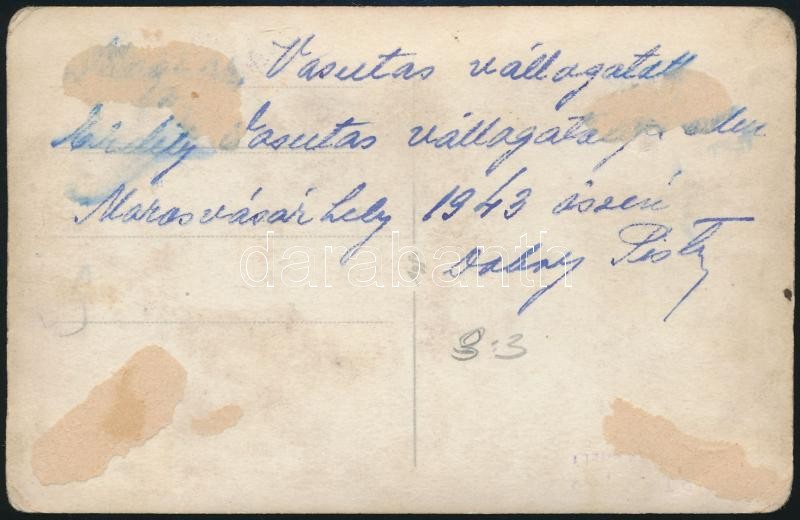 Vasutas vállogatott
Erdély Vasutas vállogatott
Marosvásárhely 1943 őszén
Pista
3:3
darabanth